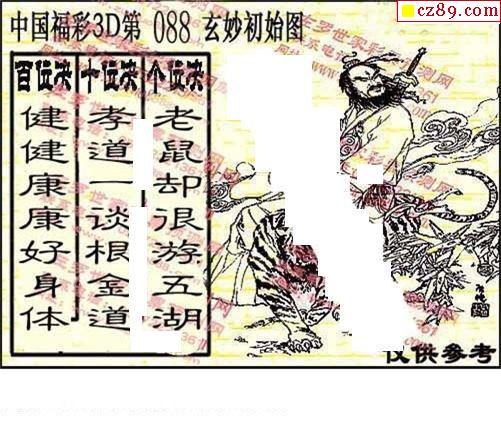 cz89.com
中国福彩3D第 088 玄妙初始图
百位决 十位决 个位决
健健康康好身体
孝道一谈根金道
老鼠却很游五湖
仅供参考